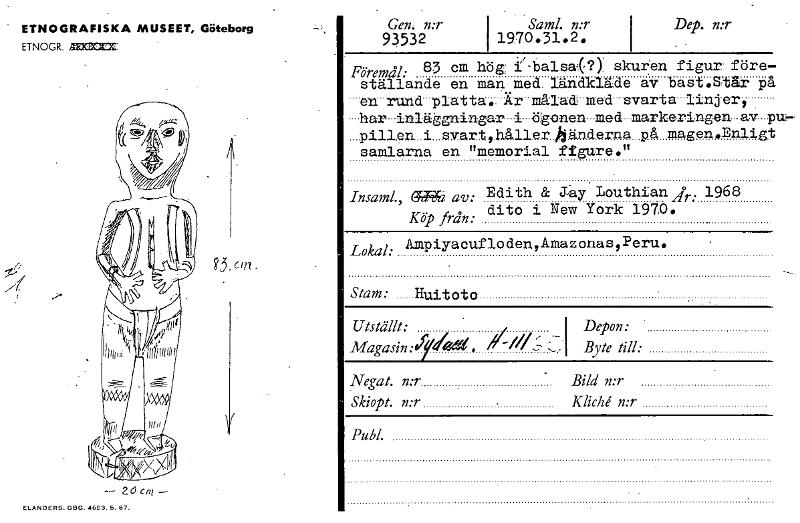 ETNOGRAFISKA MUSEET, Göteborg
ETNOGR.
83 cm.
— 20 cm —
ELANDERS. GBG. 4693. 5. 67.
Gen. n:r Saml. n:r Dep. n:r
93532 1970.31.2.
Föremål: 83 cm hög i balsa(?) skuren figur före-
ställande en man med ländkläde av bast.Står på
en rund platta. Är målad med svarta linjer,
har inläggningar i ögonen med markeringen av pu-
pillen i svart,håller händerna på magen.Enligt
samlarna en "memorial figure."
Insaml., av: Edith & Jay Louthian År: 1968
Köp från: dito i New York 1970.
Lokal: Ampiyacufloden,Amazonas,Peru.
Stam: Huitoto
Utställt: Depon:
Magasin: Sydam. H-III Byte till:
Negat. n:r Bild n:r
Skiopt. n:r Kliché n:r
Publ.